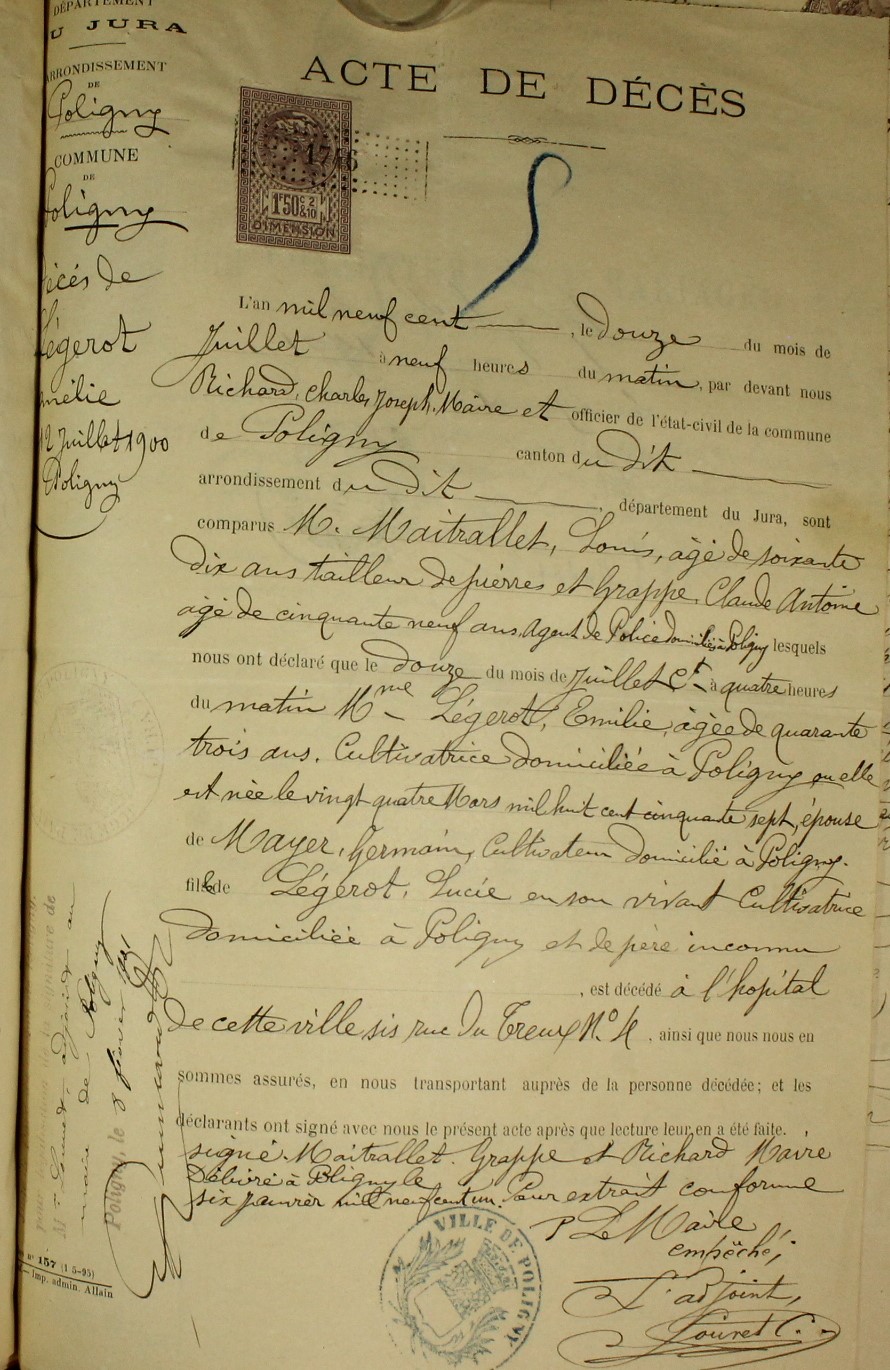 DÉPARTEMENT
U JURA
ARRONDISSEMENT
DE
Poligny
COMMUNE
DE
Poligny
écés de
Légerot
mélie
12 Juillet 1900
Poligny
ACTE DE DÉCÈS
1746
1F50 C 2 &10
DIMENSION
L'an mil neuf cent, le Douze du mois de
Juillet à neuf heures du matin, par devant nous
Richard, Charles, Joseph, Maire et officier de l'état-civil de la commune
de Poligny canton du dit
arrondissement du dit, département du Jura, sont
comparus M. Maitrallet, Louis, âgé de soixante
Dix ans tailleur de pierres et Grappe, Claude Antoine
âgé de cinquante neuf ans, Agent de Police domiciliés à Poligny lesquels
nous ont déclaré que le Douze du mois de Juillet ct à quatre heures
du matin Mme Légerot, Emilie, âgée de quarante
trois ans, Cultivatrice domiciliée à Poligny ou elle
est née le vingt quatre Mars mil huit cent cinquante sept, épouse
de Mayer, Germain, Cultivateur domicilié à Poligny.
fille de Légerot, Lucie en son vivant Cultivatrice
Domiciliée à Poligny et de père inconnu
, est décédé à l'hopital
de cette ville sis rue du Treux No 4, ainsi que nous nous en
sommes assurés, en nous transportant auprès de la personne décédée; et les
déclarants ont signé avec nous le présent acte après que lecture leur en a été faite.
signé Maitrallet. Grappe et Richard Maire
Délivré à Poligny le
six janvier mil neuf cent un. Pour extrait conforme
P Le Maire
empêché,
L'adjoint,
Louvet C.
VILLE DE POLIGNY
signature de
Mr Louvet, adjoint au
maire de Poligny
Poligny, le 8 janvier 1901
n° 157 (1-5-95)
— Imp. admin. Allain